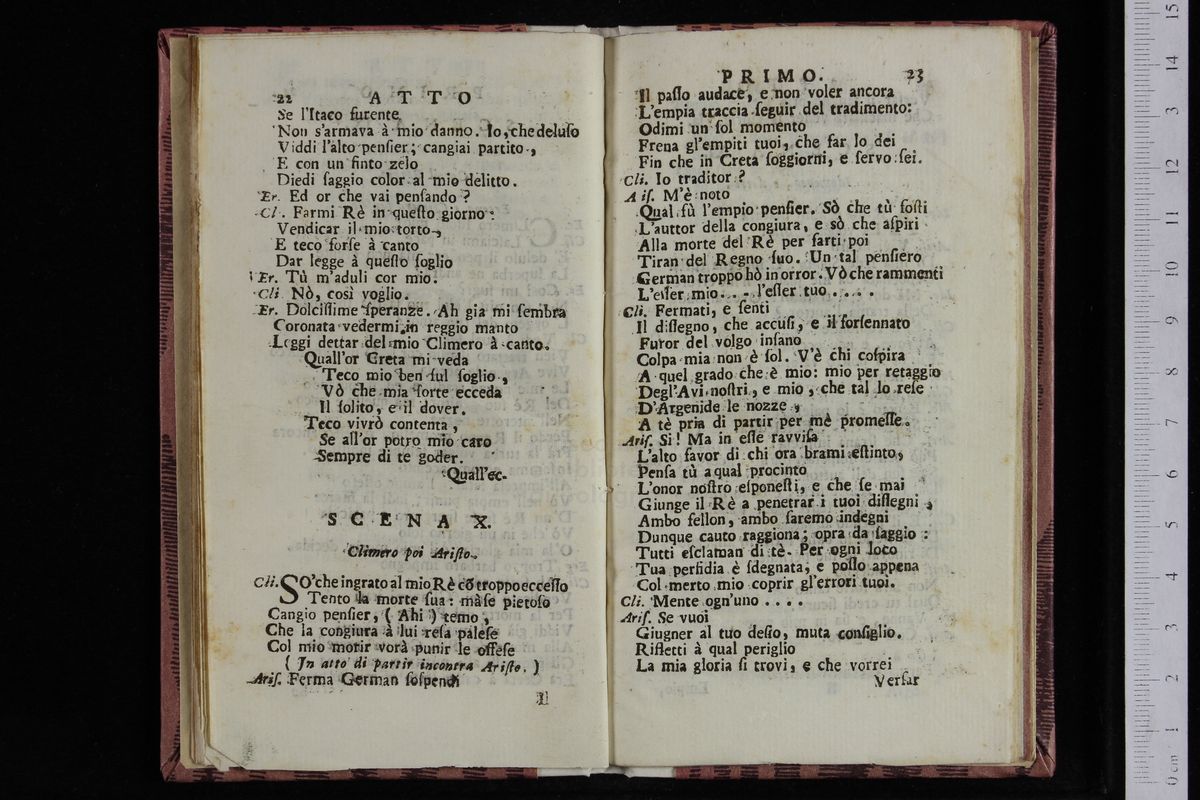 22 ATTO
Se l'Itaco furente
Non s'armava à mio danno. Io, che deluso
Viddi l'alto pensier; cangiai partito,
E con un finto zelo
Diedi saggio color al mio delitto.
Er. Ed or che vai pensando?
Cl. Farmi Rè in questo giorno:
Vendicar il mio torto,
E teco forse à canto
Dar legge à questo soglio
Er. Tù m'aduli cor mio.
Cli. Nò, così voglio.
Er. Dolcissime speranze. Ah gia mi sembra
Coronata vedermi in reggio manto
Leggi dettar del mio Climero à canto.
Quall'or Creta mi veda
Teco mio ben sul soglio,
Vò che mia sorte ecceda
Il solito, e il dover.
Teco vivrò contenta,
Se all'or potro mio caro
Sempre di te goder.
Quall'ec.
SCENA X.
Climero poi Aristo.
Cli. SO' che ingrato al mio Rè cō troppo eccesso
Tento la morte sua: mà se pietoso
Cangio pensier, (Ahi) temo,
Che la congiura à lui resa palese
Col mio morir vorà punir le offese
(In atto di partir incontra Aristo.)
Aris. Ferma German sospendi
Il
PRIMO. 23
Il passo audace, e non voler ancora
L'empia traccia seguir del tradimento:
Odimi un sol momento
Frena gl'empiti tuoi, che far lo dei
Fin che in Creta soggiorni, e servo sei.
Cli. Io traditor?
Aris. M'è noto
Qual fù l'empio pensier. Sò che tù fosti
L'auttor della congiura, e sò che aspiri
Alla morte del Rè per farti poi
Tiran del Regno suo. Un tal pensiero
German troppo hò in orror. Vò che rammenti
L'esser mio... l'esser tuo....
Cli. Fermati, e senti
Il dissegno, che accusi, e il forsennato
Furor del volgo insano
Colpa mia non è sol. V'è chi cospira
A quel grado che è mio: mio per retaggio
Degl'Avi nostri, e mio, che tal lo rese
D'Argenide le nozze,
A tè pria di partir per mè promesse.
Aris. Si! Ma in esse ravvisa
L'alto favor di chi ora brami estinto,
Pensa tù a qual procinto
L'onor nostro esponesti, e che se mai
Giunge il Rè a penetrar i tuoi dissegni,
Ambo fellon, ambo saremo indegni
Dunque cauto raggiona; opra da saggio:
Tutti esclaman di tè. Per ogni loco
Tua perfidia è sdegnata, e posso appena
Col merto mio coprir gl'errori tuoi.
Cli. Mente ogn'uno....
Aris. Se vuoi
Giugner al tuo desio, muta consiglio.
Rifletti à qual periglio
La mia gloria si trovi, e che vorrei
Versar